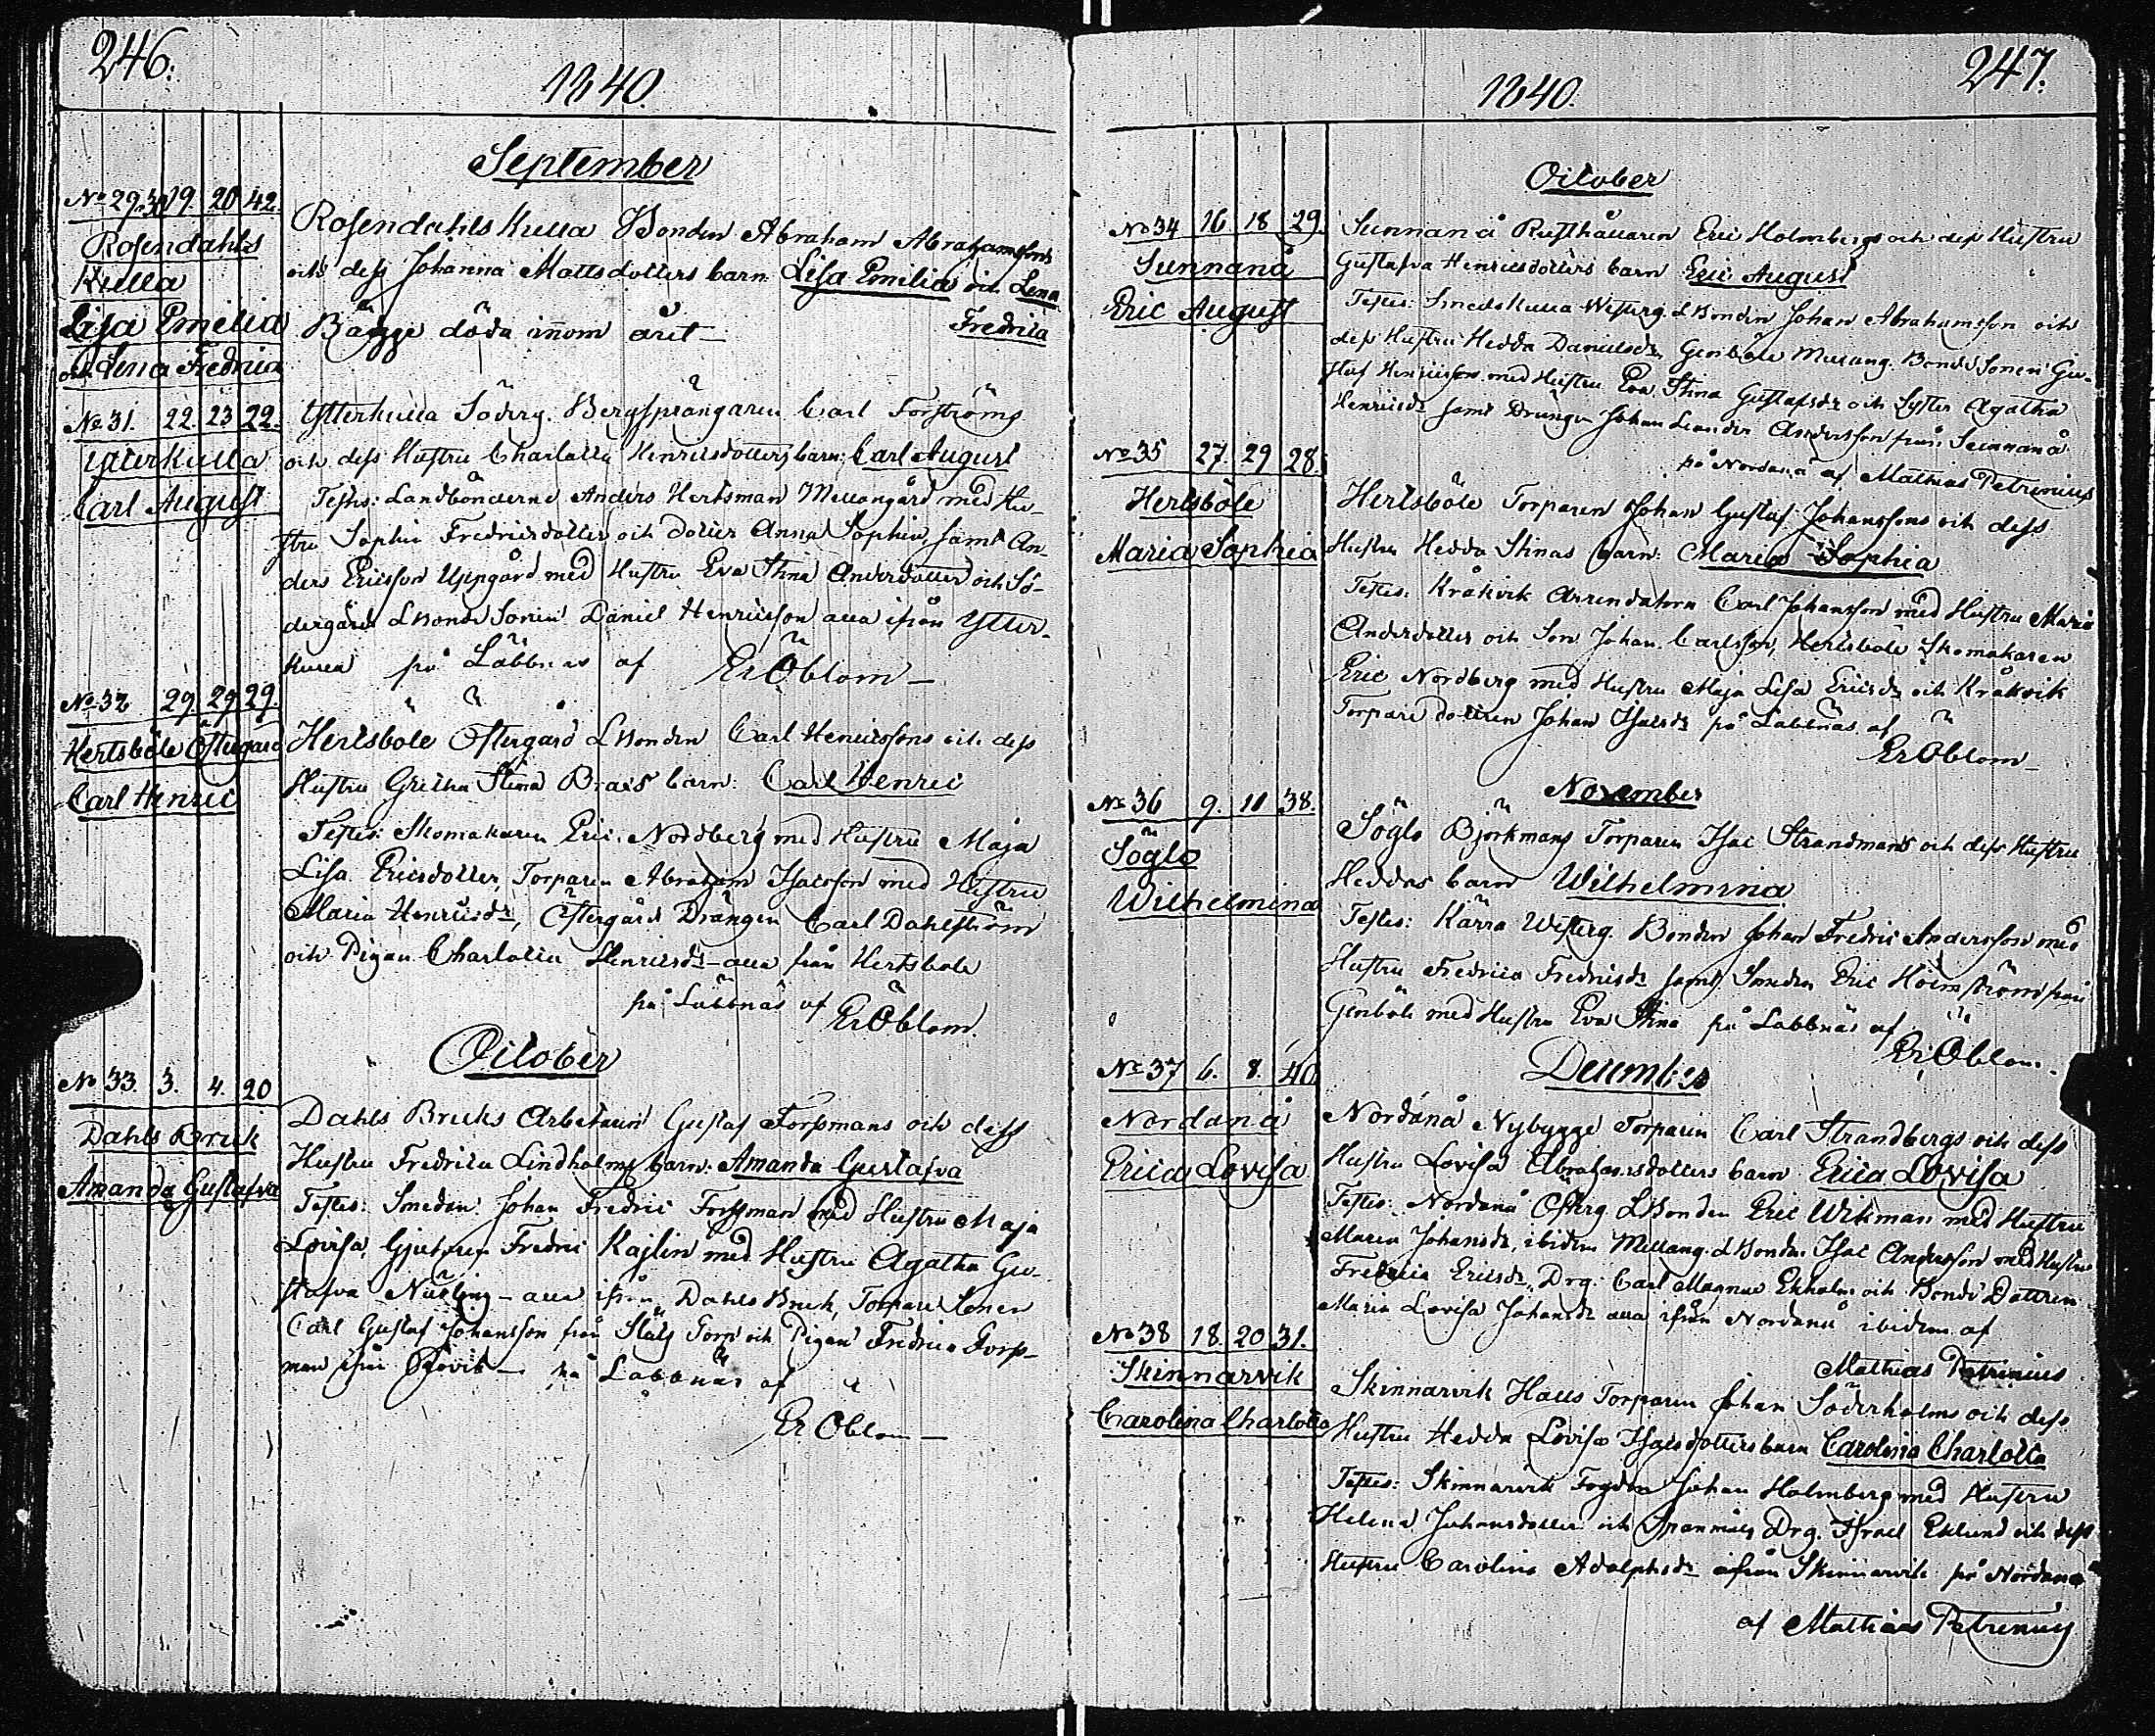 246.
1840.
September
No 29. 30 19. 20 42.
Rosendahls
Kulla
Lisa Emelia
och Lena Fredrica
Rosendahls Kulla Bonden Abraham Abrahamssons
och dess Johanna Mattsdotters barn Lisa Emilia och Lena
Bägge döda inom året — Fredrica
No 31. 22. 23 22.
Ytterkulla
Carl August
Ytterkulla Söderg. Bergsprängaren Carl Forströms
och dess Hustru Charlotta Henricsdotters barn: Carl August
Testes: Landbönderne Anders Hertsman Mellangård med Hu-
stru Sophia Fredricsdotter och dotter Anna Sophia, samt An-
ders Ericsson Uppgård med Hustru Eva Stina Andersdotter och Sö-
dergårds LBonde Sonen Daniel Henricsson alla ifrån Ytter-
kulla på Labbnäs af Er Öblom —
No 32 29. 29 29.
Hertsböle Östergård
Carl Henric
Hertsböle Östergård LBonden Carl Henricssons och dess
Hustru Gretha Stina Brax barn: Carl Henric
Testes: Skomakaren Eric Nordberg med Hustru Maja
Lisa Ericsdotter, Torparen Abraham Isacsson med Hustru
Maria Henricsdr, Östergårds Drängen Carl Dahlström
och Pigan Charlotta Henricsdr — alla från Hertsböle
på Labbnäs af Er Öblom.
October
No 33. 3. 4. 20
Dahls Bruk
Amanda Gustafva
Dahls Bruks Arbetaren Gustaf Forssmans och dess
Hustru Fredrica Lindholms barn: Amanda Gustafva
Testes: Smeden Johan Fredric Forssman med Hustru Maja
Lovisa, Gjutaren Fredric Kajlin med Hustru Agatha Gu-
stafva — alla ifrån Dahls Bruk, Torpare Sonen
Carl Gustaf Johansson från Torp och Pigan Fredrica Forss-
man ifrån Björvik — på Labbnäs af
Er Öblom —
247.
1840.
October
No 34 16 18 29.
Sunnanå
Eric August
Sunnanå Rusthållaren Eric Holmbergs och dess Hustru
Gustafva Henricsdotters barn Eric August
Testes: Smedskulla Westerg. LBonden Johan Abrahamsson och
dess Hustru Hedda Danielsdr, Genböle Mellang. Bonde Sonen Gu-
staf Henricsson med Hustru Eva Stina Gustafsdr och Syster Agatha
Henricsdr samt Drängen Johan Leander Andersson från Sunnanå
på Nordanå af Mathias Petrenius
No 35 27. 29 28.
Hertsböle
Maria Sophia
Hertsböle Torparen Johan Gustaf Johanssons och dess
Hustru Hedda Stinas barn: Maria Sophia
Testes: Kråkvik Arrendatorn Carl Johansson med Hustru Maria
Andersdotter och Son Johan Carlsson, Hertsböle Skomakaren
Eric Nordberg med Hustru Maja Lisa Ericsdr och Kråkvik
Torpare dottren Johan Isacsdr på Labbnäs af
Er Öblom —
November
No 36 9. 11 38.
Söglö
Wilhelmina
Söglö Björkmans Torparen Isac Strandmans och dess Hustru
Heddas barn Wilhelmina
Testes: Kärra Westerg. Bonden Johan Fredric Andersson med
Hustru Fredrica Fredricsdr samt Smeden Eric Holmström från
Genböle med Hustru Eva Stina på Labbnäs af
Er Öblom.
December
No 37 6. 8. 40
Nordanå
Erica Lovisa
Nordanå Nybygge Torparen Carl Strandbergs och dess
Hustru Lovisa Abrahamsdotters barn Erica Lovisa
Testes: Nordanå Österg LBonden Eric Wikman med Hustru
Maria Johansdr, ibidem Mellang. LBonden Isac Andersson med Hustru
Fredrica Ericsdr, Drg: Carl Magnus Ekholm och Bonde Dottren
Maria Lovisa Johansdr alla ifrån Nordanå ibidem af
Mathias Petrenius
No 38 18. 20 31.
Skinnarvik
Carolina Charlotta
Skinnarvik Halls Torparen Johan Söderholms och dess
Hustru Hedda Lovisa Isacsdotters barn Carolina Charlotta
Testes: Skinnarvik Fogden Johan Holmberg med Hustru
Helena Johansdotter och Drg. Israel Eklund och dess
Hustru Carolina Adolphsdr ifrån Skinnarvik på Nordanå
af Mathias Petrenius